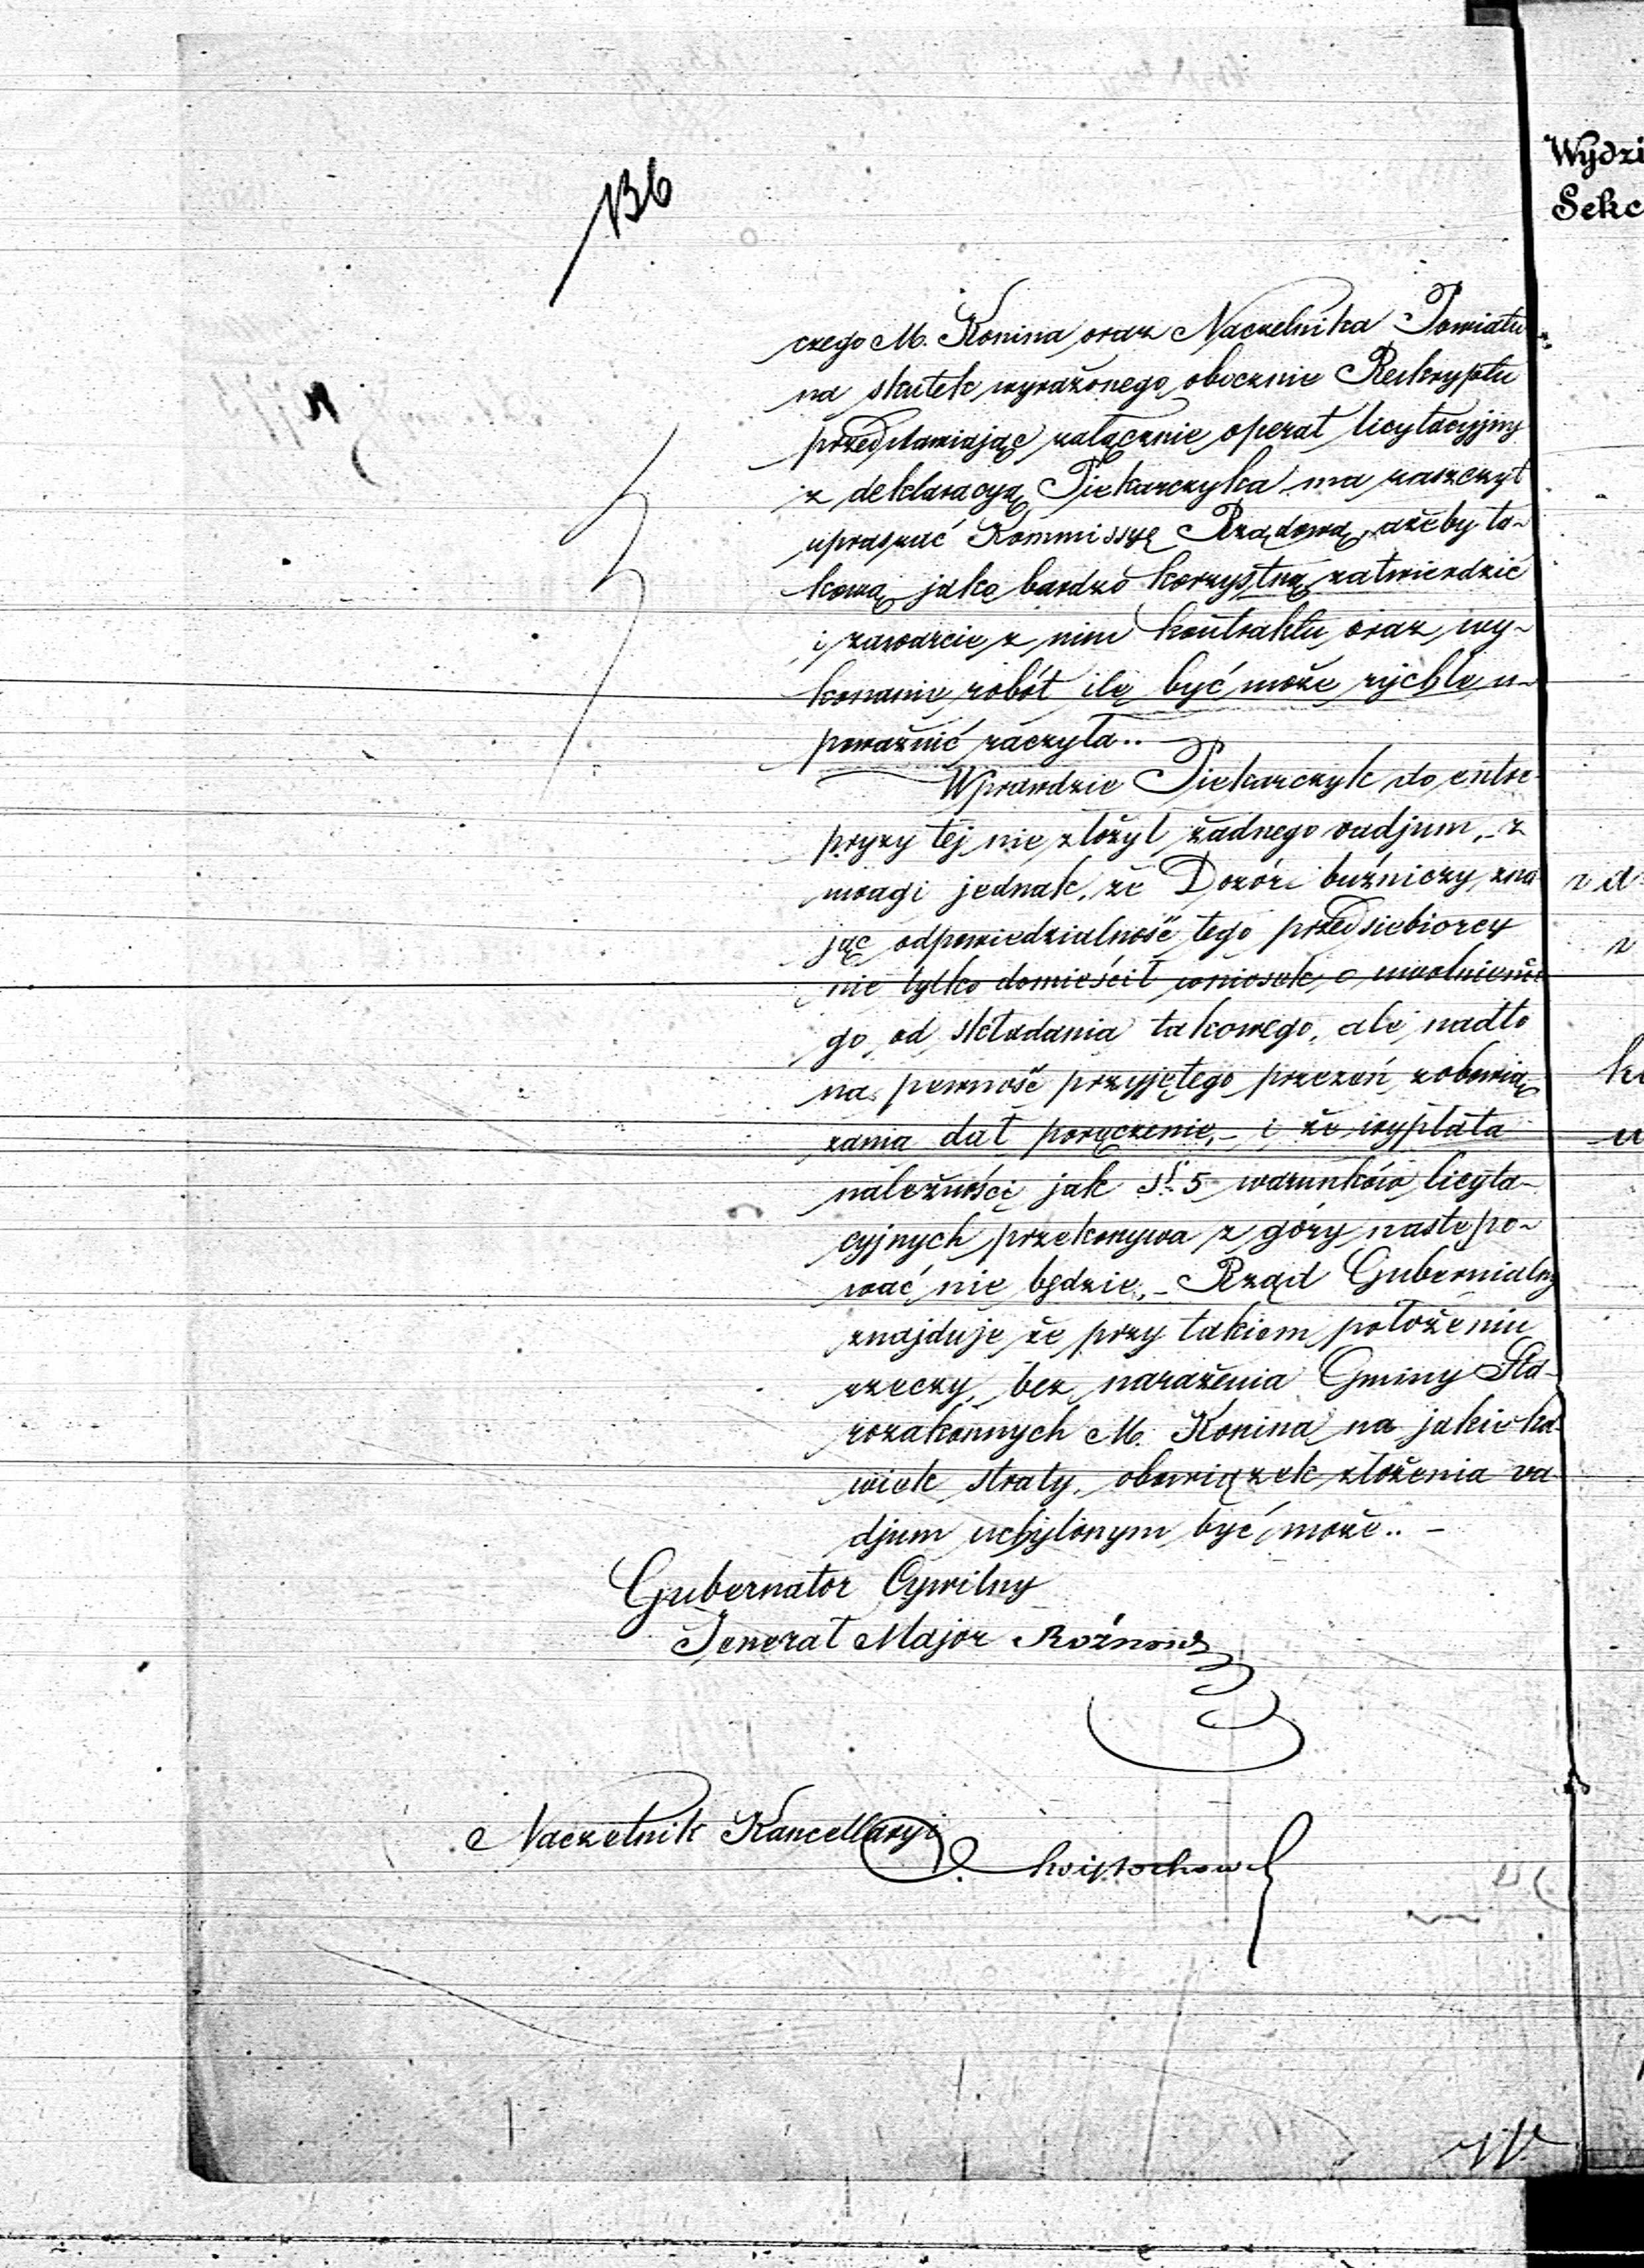 136
czego M. Konina oraz Naczelnika Powiatu
na skutek wyrażonego obocznie Reskryptu
przedstawiając załącznie operat licytacyjny
z deklaracyą Piekarczyka ma zaszczyt
upraszać Kommissyę Rządową, ażeby ta-
kową jako bardzo korzystną zatwierdzić
i zawarcie z nim kontraktu oraz wy-
konanie robót ile być może rychle u-
poważnić raczyła..
Wprawdzie Piekarczyk do entre-
pryzy tej nie złożył żadnego vadjum, z
uwagi jednak, że Dozór bużniczy zna
jąc odpowiedzialność tego przedsiebiorcy
nie tylko domieścił wniosek o uwolnienie
go od składania takowego, ale nadto
na pewność przyjętego przezeń zobowią
zania dał poręczenie, – i że wypłata
należności jak § 5 warunków licyta-
cyjnych przekonywa z góry nastepo-
wać nie będzie, – Rząd Gubernialny
znajduje że przy takiem położeniu
rzeczy, bez narażenia Gminy Sta-
rozakonnych M. Konina na jakieko-
wiek straty, obowiązek złożenia va
djum uchylonym być może.. –
Gubernator Cywilny
Jenerał Major
Naczelnik Kancellaryi
Wydzi
Sekc